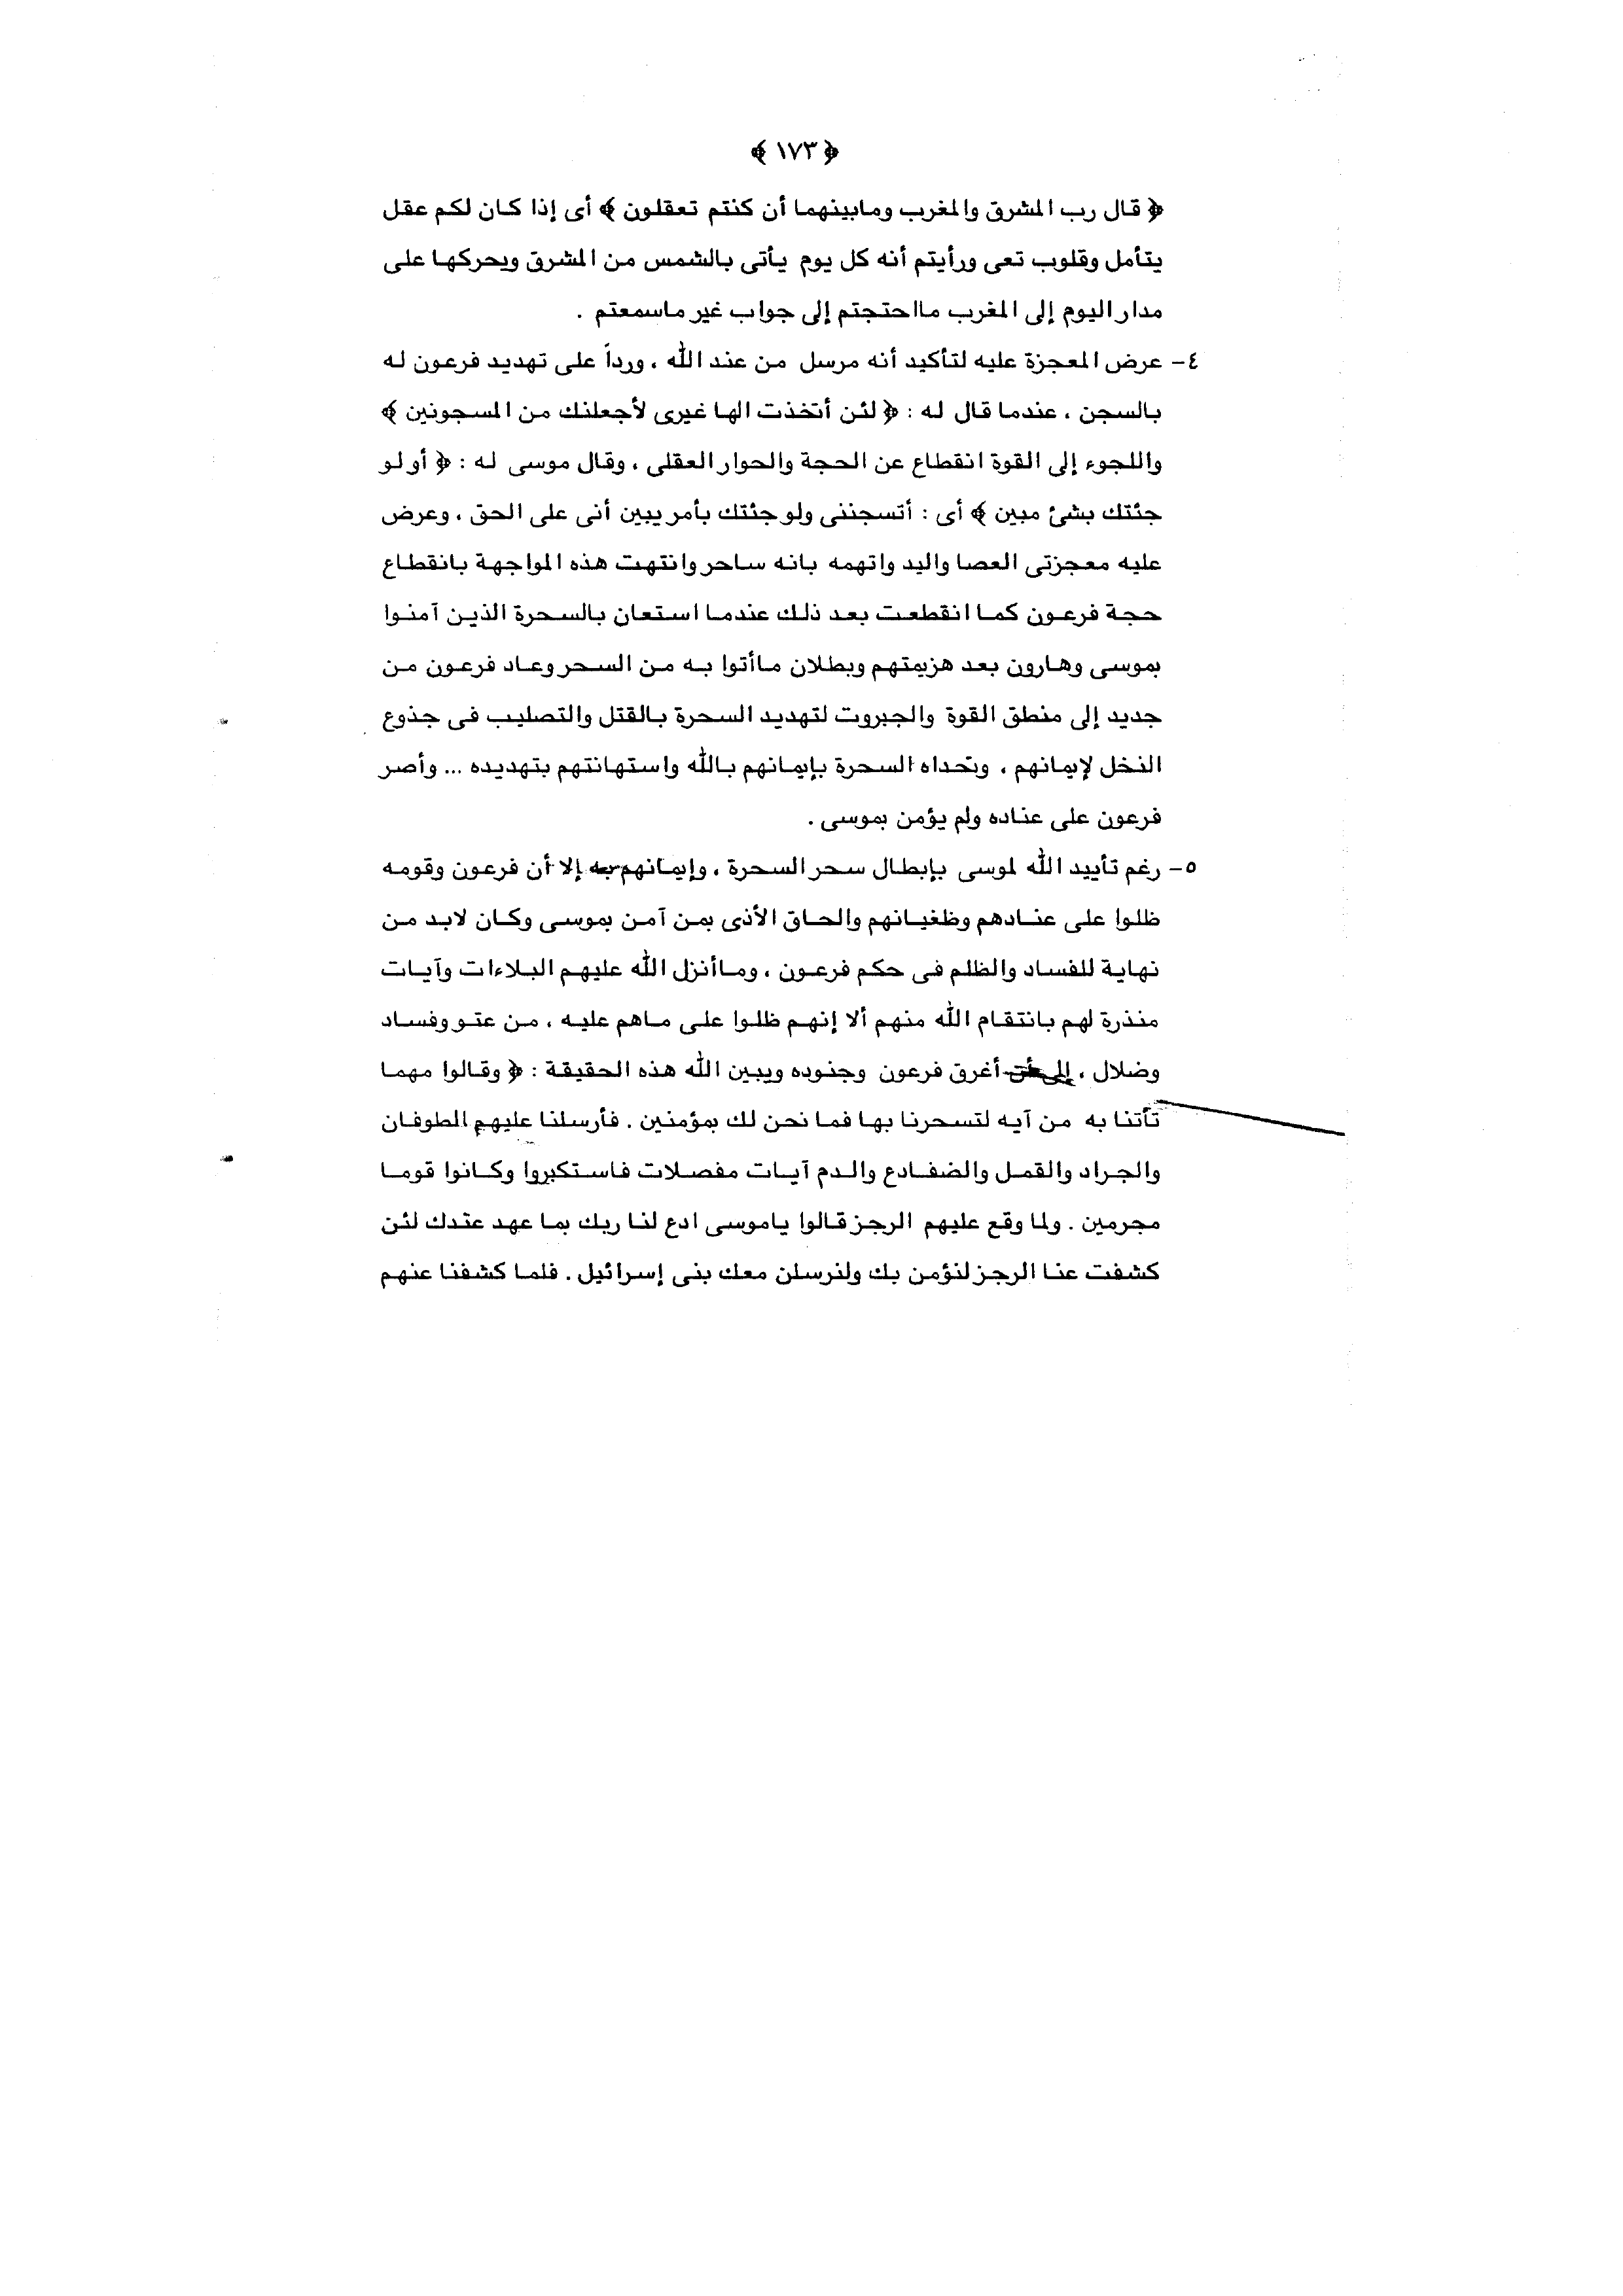 ﴿ ١٧٣ ﴾
﴿ قال رب المشرق والمغرب ومابينهما أن كنتم تعقلون ﴾ أى إذا كان لكم عقل
يتأمل وقلوب تعى ورأيتم أنه كل يوم يأتى بالشمس من المشرق ويحركها على
مدار اليوم إلى المغرب مااحتجتم إلى جواب غير ماسمعتم .
٤- عرض المعجزة عليه لتأكيد أنه مرسل من عند الله ، ورداً على تهديد فرعون له
بالسجن ، عندما قال له : ﴿ لئن أتخذت الها غيرى لأجعلنك من المسجونين ﴾
واللجوء إلى القوة انقطاع عن الحجة والحوار العقلى ، وقال موسى له : ﴿ أو لو
جئتك بشئ مبين ﴾ أى : أتسجننى ولو جئتك بأمر يبين أنى على الحق ، وعرض
عليه معجزتى العصا واليد واتهمه بانه ساحر وانتهت هذه المواجهة بانقطاع
حجة فرعون كما انقطعت بعد ذلك عندما استعان بالسحرة الذين آمنوا
بموسى وهارون بعد هزيمتهم وبطلان ماأتوا به من السحر وعاد فرعون من
جديد إلى منطق القوة والجبروت لتهديد السحرة بالقتل والتصليب فى جذوع
النخل لإيمانهم ، وتحداه السحرة بإيمانهم بالله واستهانتهم بتهديده ... وأصر
فرعون على عناده ولم يؤمن بموسى .
٥- رغم تأييد الله لموسى بإبطال سحر السحرة ، وإيمانهم به إلا أن فرعون وقومه
ظلوا على عنادهم وظغيانهم والحاق الأذى بمن آمن بموسى وكان لابد من
نهاية للفساد والظلم فى حكم فرعون ، وماأنزل الله عليهم البلاءات وآيات
منذرة لهم بانتقام الله منهم ألا إنهم ظلوا على ماهم عليه ، من عتو وفساد
وضلال ، إلى أن أغرق فرعون وجنوده ويبين الله هذه الحقيقة : ﴿ وقالوا مهما
تأتنا به من آيه لتسحرنا بها فما نحن لك بمؤمنين . فأرسلنا عليهم الطوفان
والجراد والقمل والضفادع والدم آيات مفصلات فاستكبروا وكانوا قوما
مجرمين . ولما وقع عليهم الرجز قالوا ياموسى ادع لنا ربك بما عهد عتدك لئن
كشفت عنا الرجز لنؤمن بك ولنرسلن معك بنى إسرائيل . فلما كشفنا عنهم